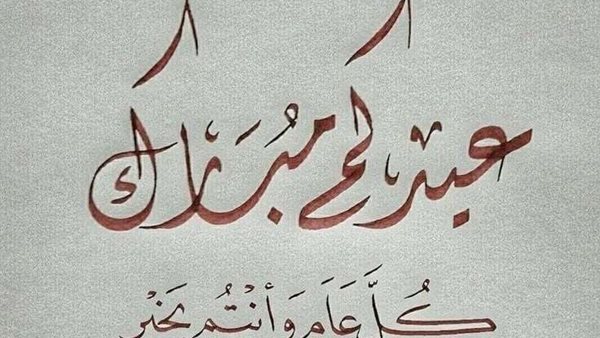 عيدكم مُبَارك
كُلَّ عَام وَأنْتُم بَخَيْر